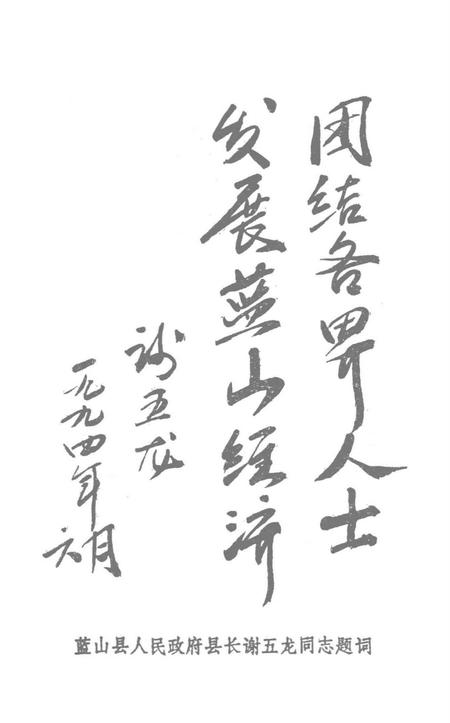 团结各界人士
发展蓝山经济
谢五龙
一九九四年六月
蓝山县人民政府县长谢五龙同志题词